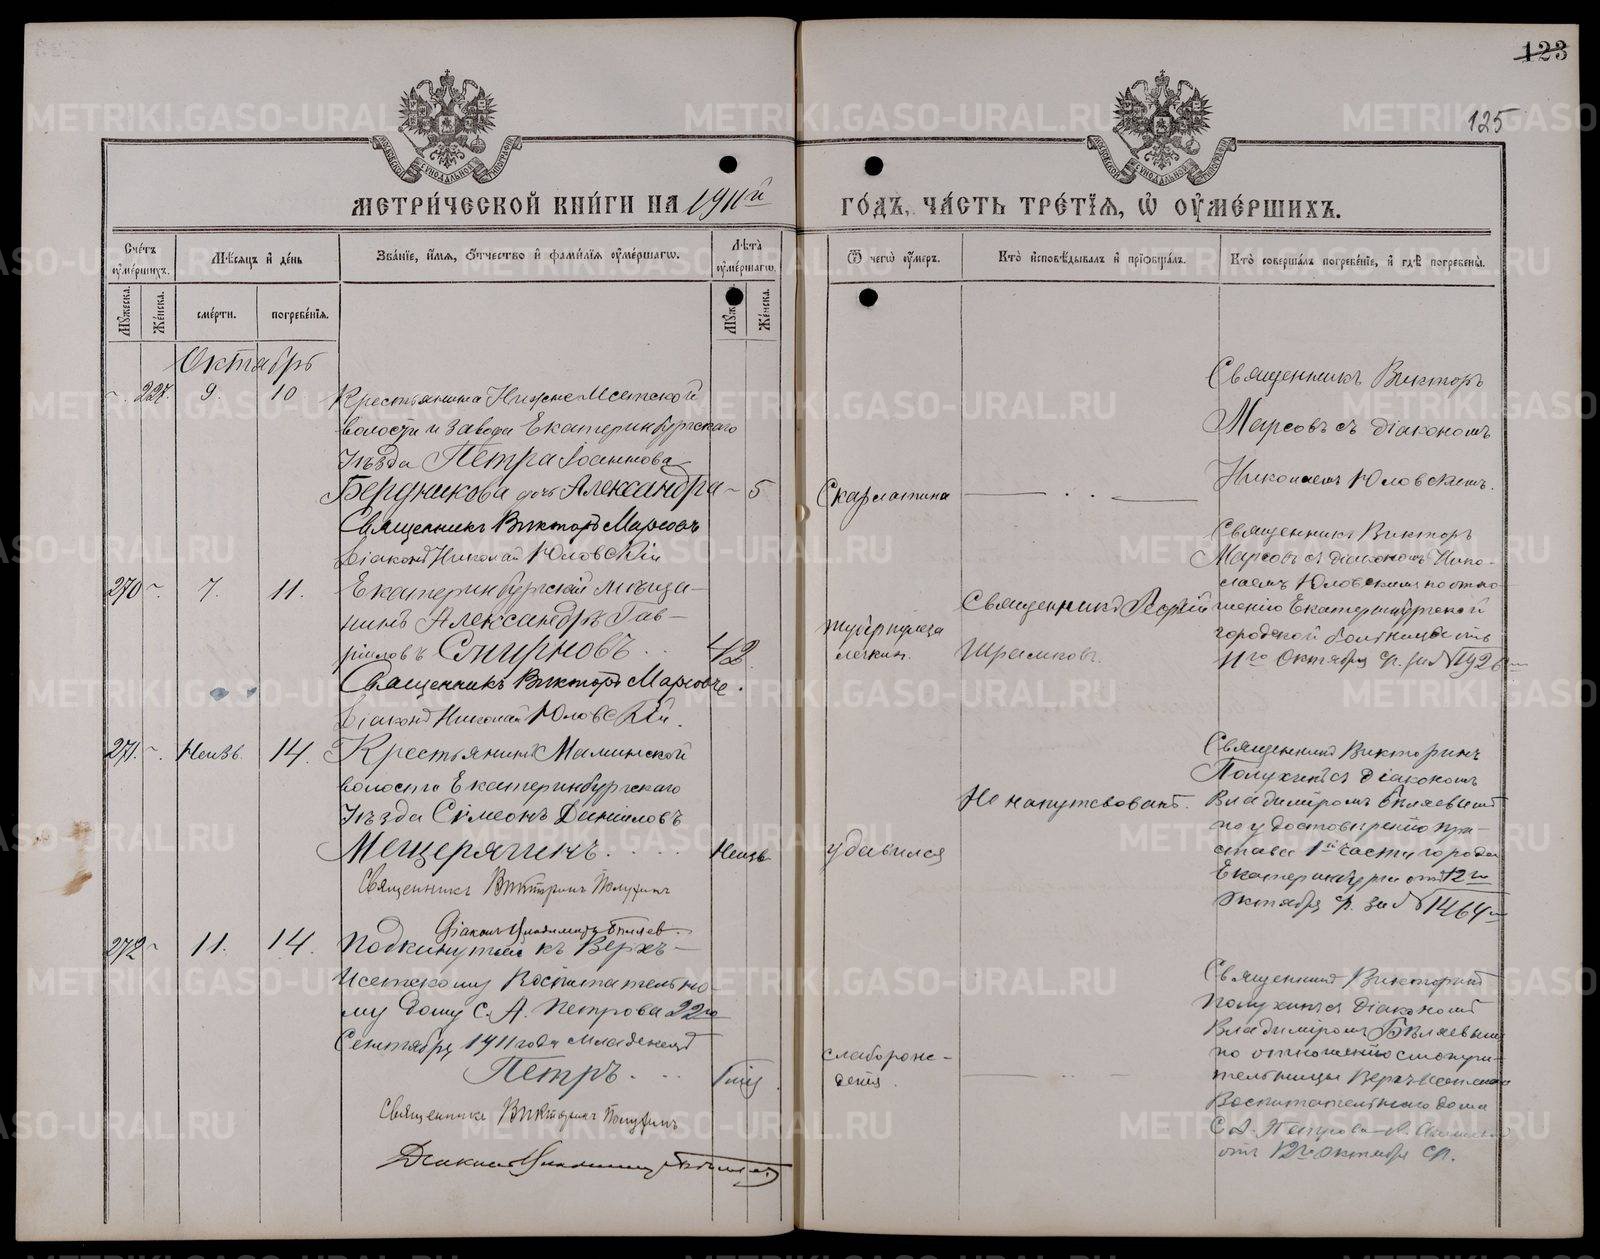 123
125
МЕТРИ́ЧЕСКОЙ КНИ́ГИ НА 1911й
ГО́ДЪ, ЧА́СТЬ ТРЕ́ТІѦ, Ѽ ОУМЕ́РШИХЪ.
Сче́тъ оуме́ршихъ.
Мѣ́сѧцъ и҆ де́нь
Зва́нїе, и҆́мѧ, ѻ҆́тчество и҆ фами́лїѧ оуме́ршагѡ.
Лѣ́та оуме́ршагѡ.
Ѿ чегѡ̀ оу́меръ.
Кто̀ и҆сповѣ́дывалъ и҆ прїѡбща́лъ.
Кто̀ соверша́лъ погребе́нїе, и҆ гдѣ̀ погребены̀.
Мꙋ́жеска.
Же́нска.
сме́рти.
погребе́нїѧ.
Мꙋ́ж
Же́нска.
Октябрь
227. 9. 10
Крестьянина Нижне Исетской
волости и завода Екатеринбургскаго
уѣзда Петра Іоаннова
Бердникова дочь Александра – 5
Священникъ Викторъ Марсовъ
Діаконъ Николай Юловскій
Скарлатина
Священникъ Викторъ
Марсовъ съ діакономъ
Николаемъ Юловскимъ.
270 – 7. 11.
Екатеринбургскій мѣща-
нинъ Александръ Гав-
риловъ Смирновъ . . 42
Священникъ Викторъ Марсовъ.
Діаконъ Николай Юловскій.
туберкулеза
легкихъ.
Священникъ Георгій
Шрамковъ.
Священникъ Викторъ
Марсовъ съ діакономъ Нико-
лаемъ Юловскимъ по отно-
шенію Екатеринбургской
городской больницы отъ
11го Октября с/г. за № 1926
271. – Неизв. 14.
Крестьянинъ Маминской
волости Екатеринбургскаго
уѣзда Симеонъ Даніиловъ
Мещерягинъ. . . . Неизв.
Священникъ Викторинъ Полухинъ
Діаконъ Владиміръ Бѣляев.
удавился
Не напутствованъ.
Священникъ Викторинъ
Полухинъ съ діакономъ
Владиміромъ Бѣляевымъ
по удостовѣренію при-
става 1й части города
Екатеринбурга отъ 12го
Октября с/г. за № 1464
272 – 11. 14.
Подкинутый къ Верхъ-
Исетскому Воспитательно-
му дому С. А. Петрова 22го
Сентября 1911 года младенецъ
Петръ. . . .
Священникъ Викторинъ Полухинъ
Діаконъ Владиміръ Бѣляев
слаборож-
денія.
Священникъ Викторинъ
Полухинъ съ діакономъ
Владиміромъ Бѣляевымъ
по отношенію смотри-
тельницы Верхъ-Исетскаго
Воспитательнаго дома
С. А. Петрова
отъ 12го Октября с/г.
METRIKI.GASO-URAL.RU